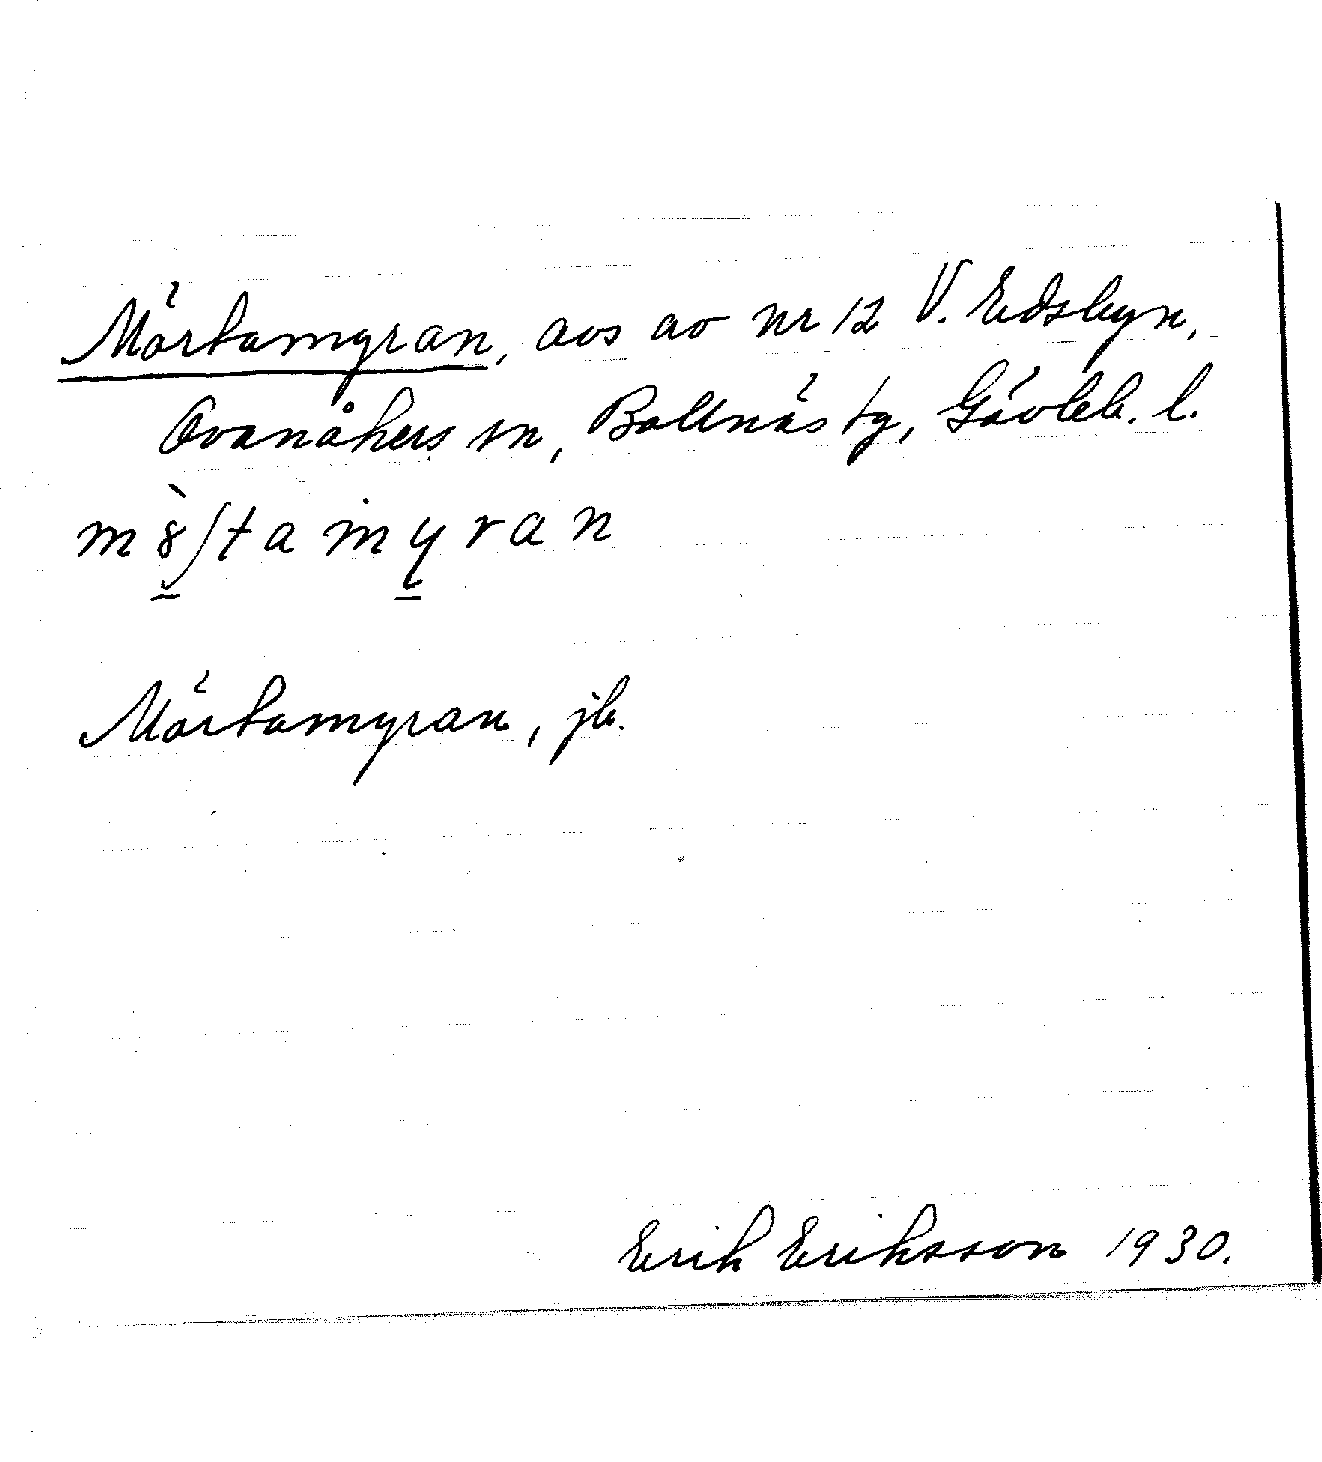 Mörtamyran, avs av nr 12 V. Edsbyn,
Ovanåkers sn, Bollnäs tg, Gävleb. l.
Mörtamyran, jb.
Erik Eriksson 1930.